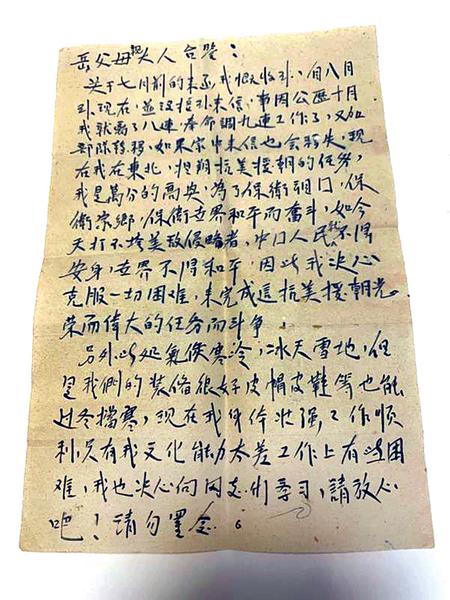 岳父母親大人台鑒：
关于七月前的来函我收到，自八月
到现在，並没接到来信，事因公歷十月
我就离了八連，奉命調九連工作了，又加
部隊移，如果家中来信也会失，现
在我在東北，担抗美援朝的任务，
我是萬分的高興，為了保衛门，保
衛家鄉，保衛世界和平而奮斗，如今
天打不垮美敌侵略者，中门人民就不得
安身，世界不得和平，因此我决心
克服一切困难，来完成這抗美援朝光
荣而偉大的任务而斗争
另外此处氣候寒冷，冰天雪地，但
是我們的装备很好皮帽皮鞋等也能
过冬擋寒，现在我身体壮强，工作顺
利，只有我文化能力太差工作上有些困
难，我也决心向同志们学习，請放心
吧！请勿罣念。